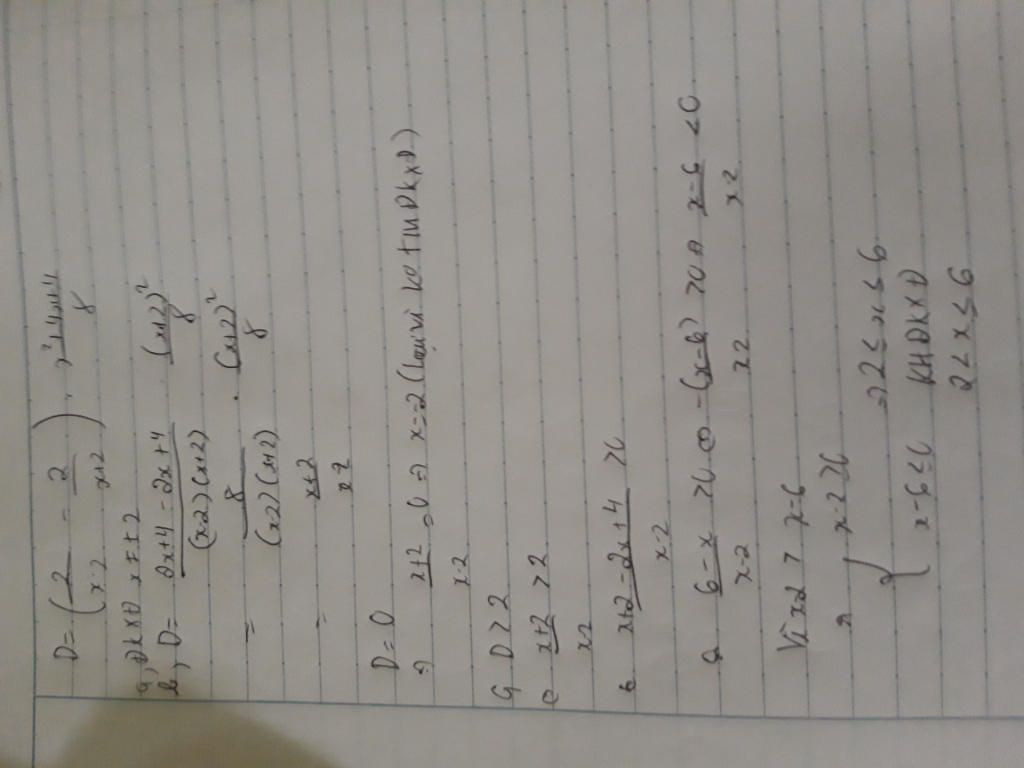 D = ( 2/x-2 - 2/x+2 ) . x²+4x+4/8
a) ĐKXĐ x ≠ ±2
b) D = 2x+4-2x+4/(x2)(x+2) . (x+2)²/8
= 8/(x2)(x+2) . (x+2)²/8
= x+2/x-2
D = 0
=> x+2/x-2 = 0 => x=-2 (loại vì ko t/m ĐKXĐ)
D > 2
x+2/x-2 > 2
x+2-2x+4/x-2
6-x/x-2 -(x-6)/x2 x-6/x2 <0
Vì x-2 > x-6
x-2
x-6 => 2 ≤ x ≤ 6
KHĐKXĐ
2 < x ≤ 6